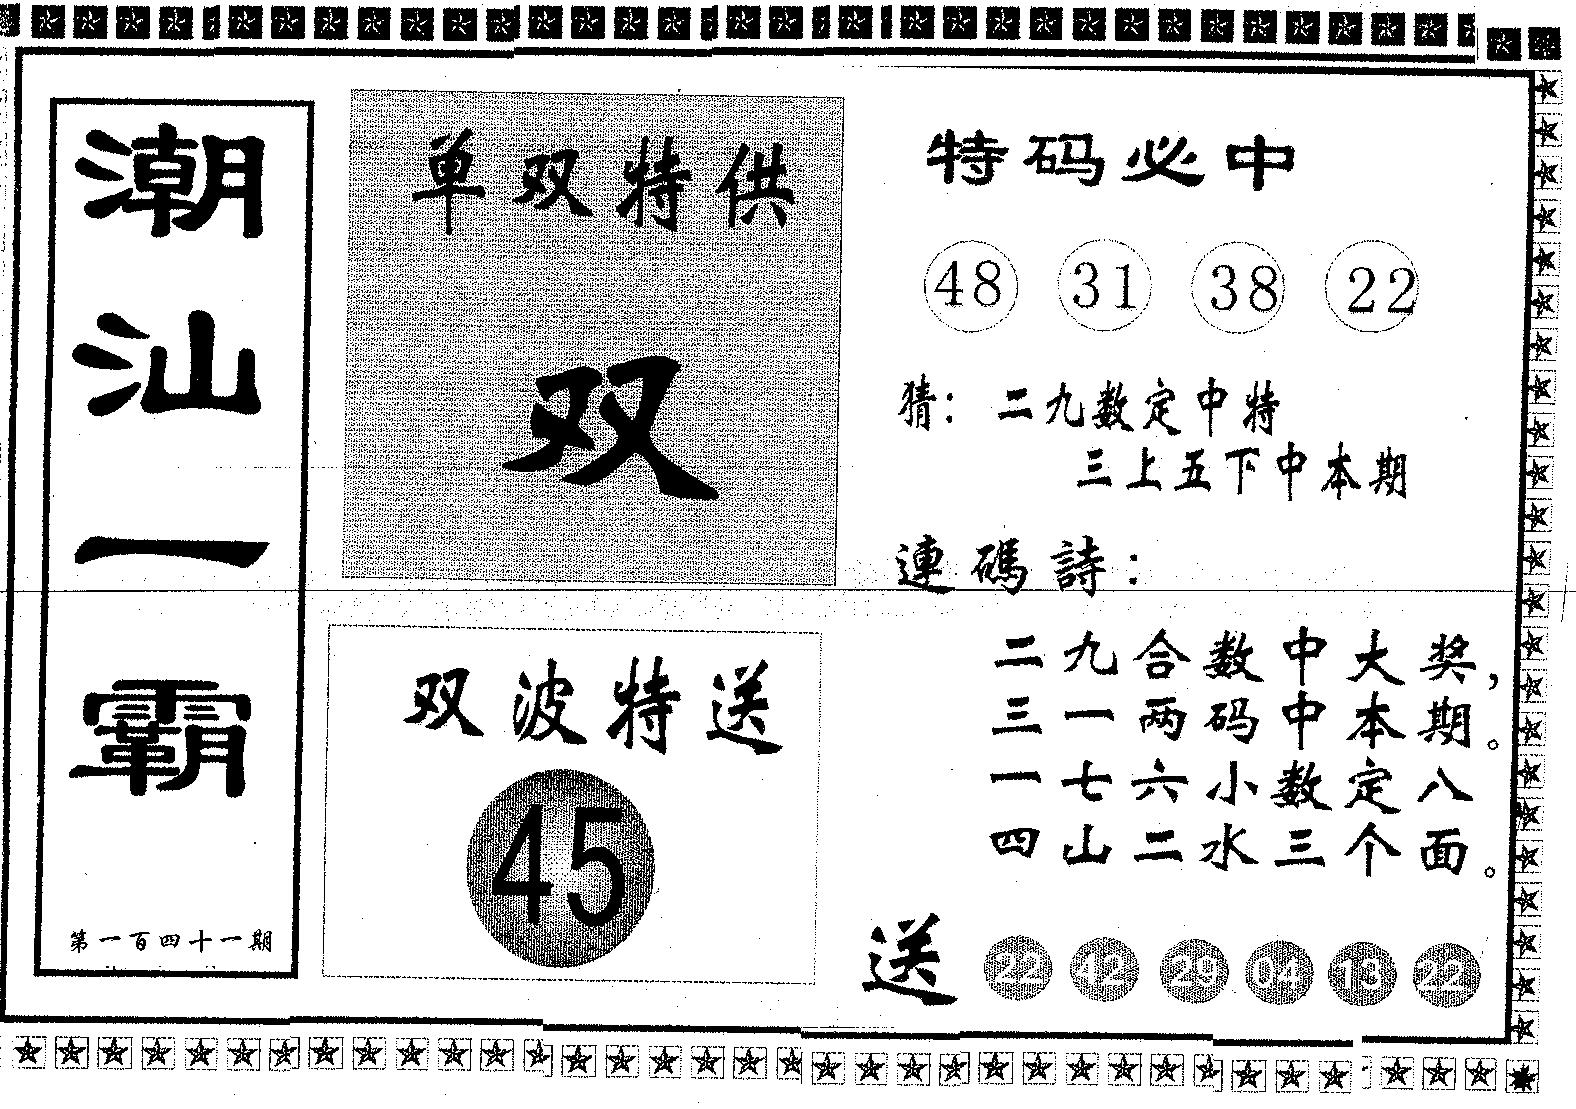 潮汕一霸
第一百四十一期
单双特供
双
双波特送
45
特码必中
48 31 38 22
猜：二九数定中特
三上五下中本期
連碼詩：
二九合数中大奖，
三一两码中本期。
一七六小数定八
四山二水三个面。
送 22 42 29 04 13 22